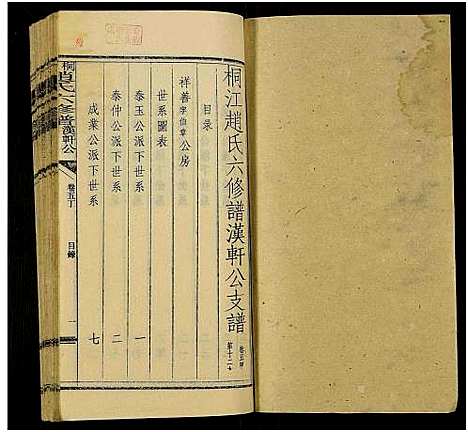 桐江趙氏六修譜漢軒公支譜
目录
祥善字伯章公房
世系圖表
泰玉公派下世系 一
泰仲公派下世系 二
成業公派下世系 七
桐江趙氏六修普漢軒公
卷五丁 目錄 一